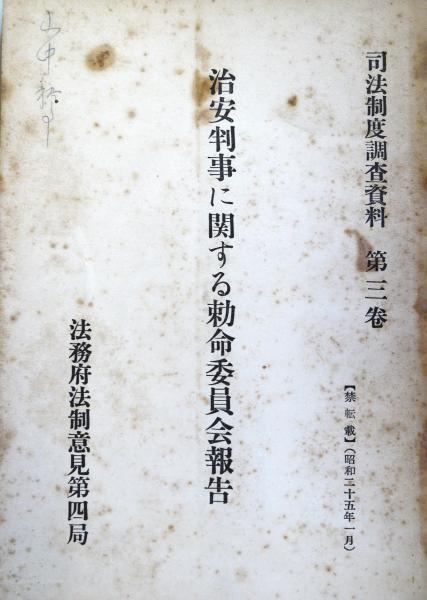 司法制度調査資料 第三巻
【禁転載】(昭和二十五年一月)
治安判事に関する勅命委員会報告
法務府法制意見第四局